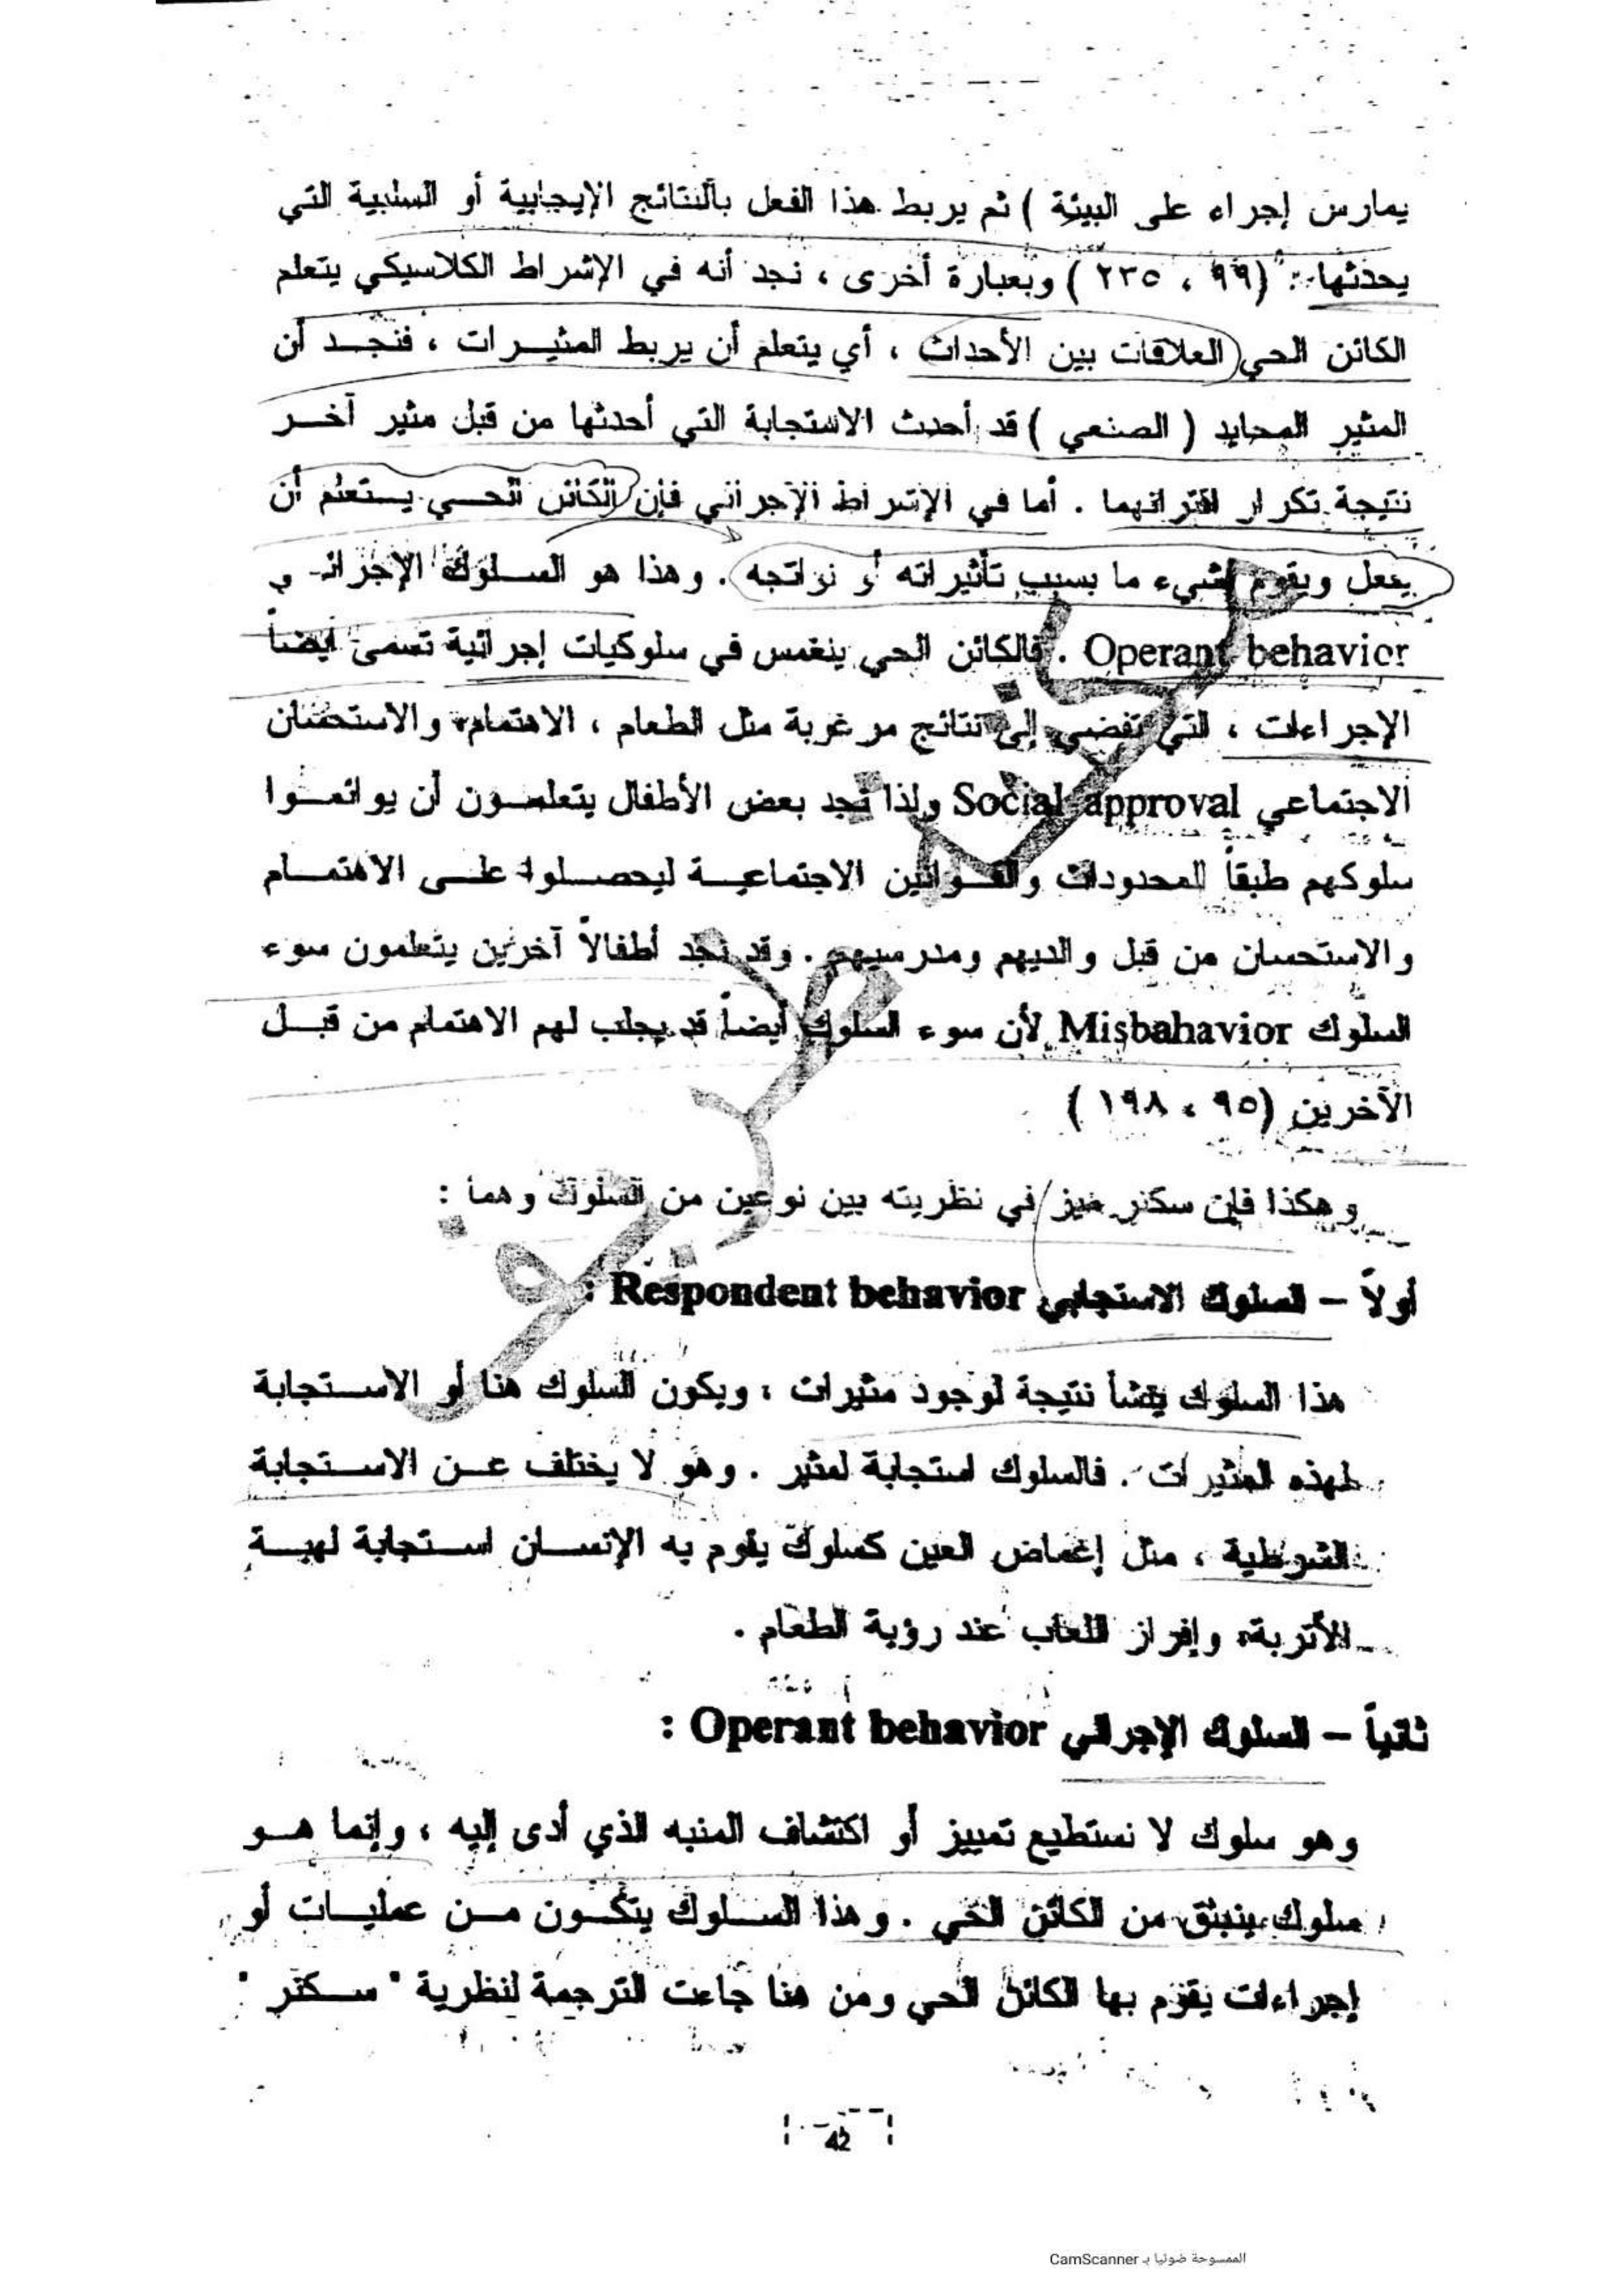 يمارس إجراء على البيئة ) ثم يربط هذا الفعل بالنتائج الإيجابية أو السلبية التي
يحدثها (٩٩ ، ٢٣٥ ) وبعبارة أخرى ، نجد أنه في الإشراط الكلاسيكي يتعلم
الكائن الحي العلاقات بين الأحداث ، أي يتعلم أن يربط المثيـــرات ، فنجـــد أن
المثير المحايد ( الصنعي ) قد أحدث الاستجابة التي أحدثها من قبل مثير آخـــر
نتيجة تكرار اقترانهما . أما في الإشراط الإجرائي فإن الكائن الحـــي يستعلم أن
يفعل ويقوم بشيء ما بسبب تأثيراته أو نواتجه . وهذا هو الســـلوك الإجرائـي
Operant behavior . فالكائن الحي ينغمس في سلوكيات إجرائية تسمى أيضاً
الإجراءات ، التي تفضي إلى نتائج مرغوبة مثل الطعام ، الاهتمام، والاستحسان
الاجتماعي Social approval ولذا نجد بعض الأطفال يتعلمـــون أن يوائمـــوا
سلوكهم طبقاً للمحدودات والقـــوانين الاجتماعيـــة ليحصـــلوا علـــى الاهتمـــام
والاستحسان من قبل والديهم ومدرسيهم . وقد نجد أطفالاً آخرين يتعلمون سوء
السلوك Misbahavior لأن سوء السلوك أيضاً قد يجلب لهم الاهتمام من قبـــل
الآخرين (٩٥ ، ١٩٨ )
وهكذا فإن سكنر ميز في نظريته بين نوعين من السلوك وهما :
أولاً – السلوك الاستجابي Respondent behavior :
هذا السلوك ينشأ نتيجة لوجود مثيرات ، ويكون السلوك هنا أو الاســـتجابة
لهذه المثيرات . فالسلوك استجابة لمثير . وهو لا يختلف عـــن الاســـتجابة
الشرطية ، مثل إغماض العين كسلوك يقوم به الإنســـان اســـتجابة لهبـــة
الأتربة، وإفراز اللعاب عند رؤية الطعام .
ثانياً – السلوك الإجرائي Operant behavior :
وهو سلوك لا نستطيع تمييز أو اكتشاف المنبه الذي أدى إليه ، وإنما هـــو
سلوك ينبثق من الكائن الحي . وهذا الســـلوك يتكـــون مـــن عمليـــات أو
إجراءات يقوم بها الكائن الحي ومن هنا جاءت الترجمة لنظرية " ســـكنر "
42
الممسوحة ضوئيا بـ CamScanner